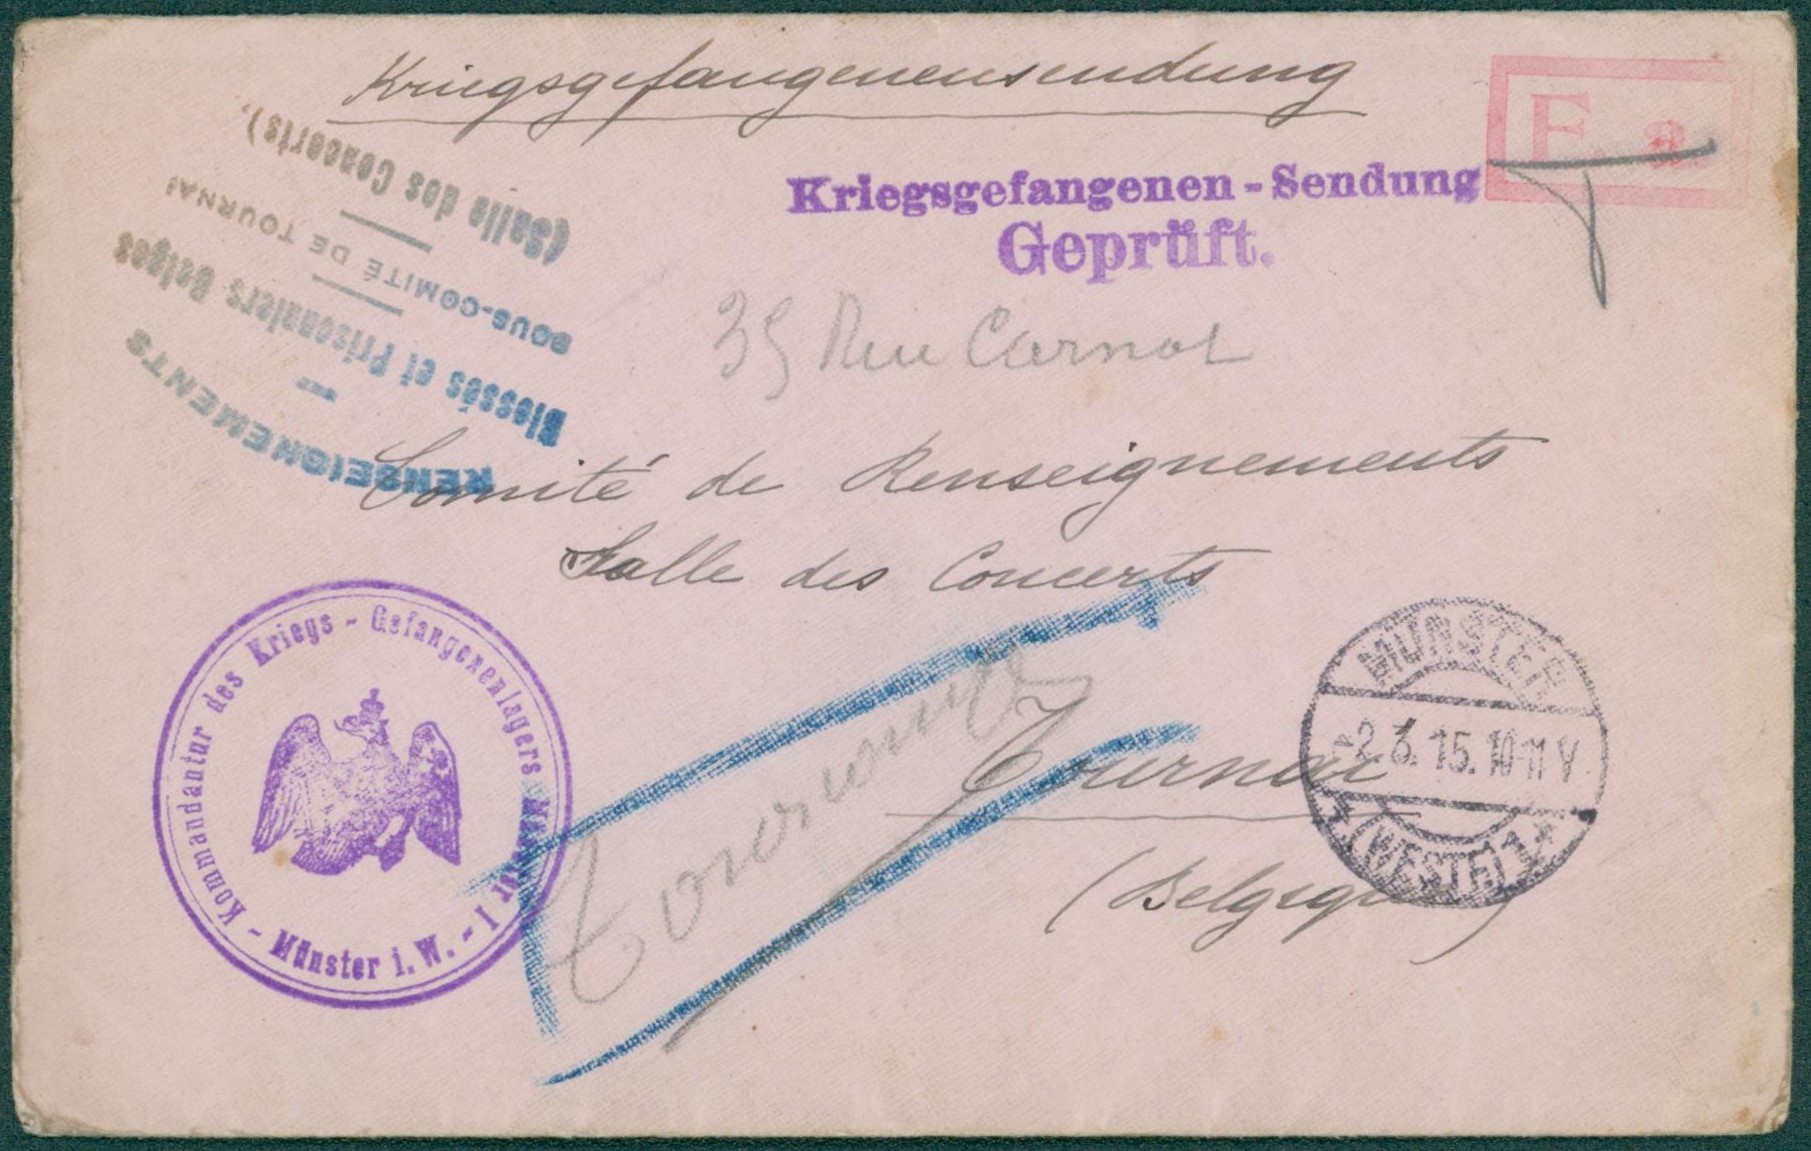 Kriegsgefangenensendung
F. a.
Kriegsgefangenen-Sendung
Geprüft.
(Salle des Concerts).
SOUS-COMITÉ DE TOURNAI
Blessés et Prisonniers Belges
RENSEIGNEMENTS
35 Rue Carnot
Comité de Renseignements
Salle des Concerts
Tournai
(Belgique)
MÜNSTER
-2.3.15.10-11V
*(WESTF.)1*
Kommandantur des Kriegs-Gefangenenlagers Münster I
- Münster i. W. -